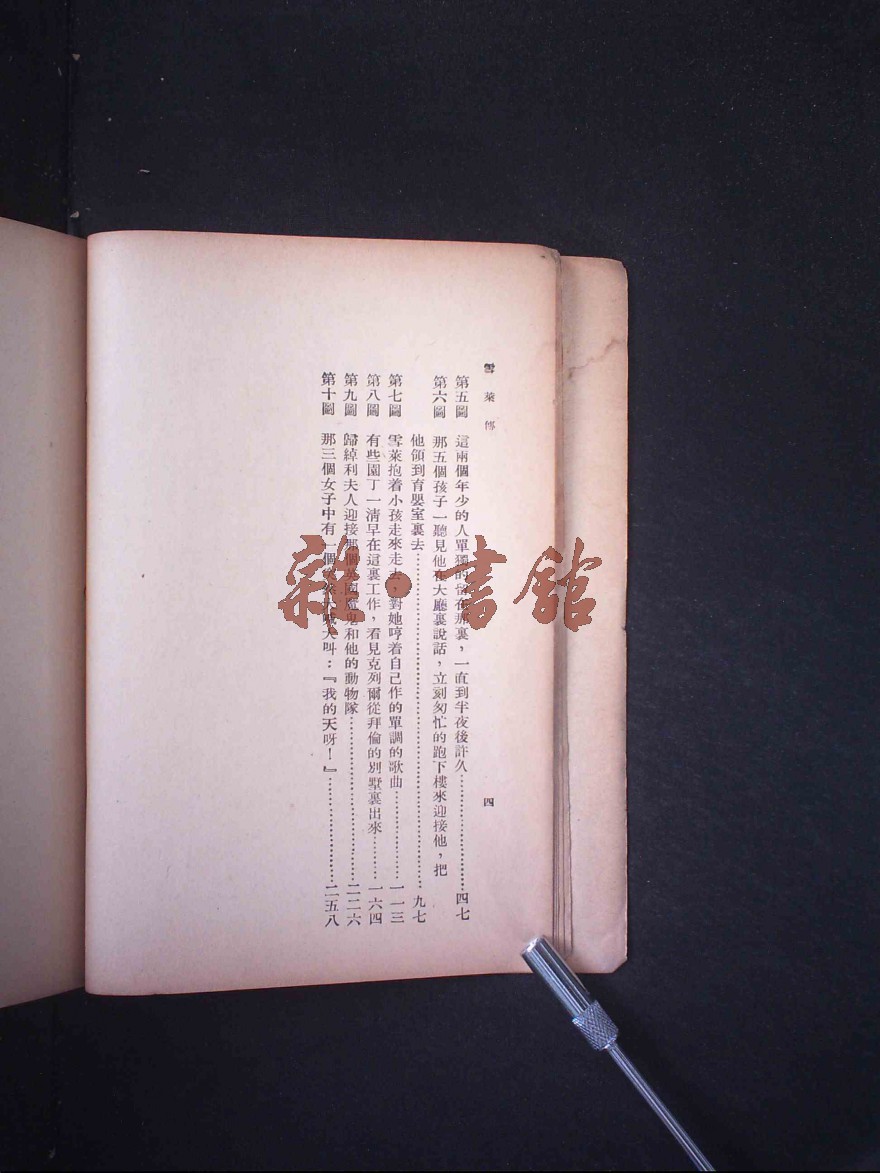 雪萊傳
四
第五圖 這兩個年少的人單獨的留在那裏，一直到半夜後許久…………四七
第六圖 那五個孩子一聽見他在大廳裏說話，立刻匆忙的跑下樓來迎接他，把
他領到育嬰室裏去…………九七
第七圖 雪萊抱着小孩走來走去，對她哼着自己作的單調的歌曲…………一一三
第八圖 有些園丁一清早在這裏工作，看見克列爾從拜倫的別墅裏出來…………一六四
第九圖 歸綽利夫人迎接那個英國魔鬼和他的動物隊…………二二六
第十圖 那三個女子中有一個大叫：『我的天呀！』…………二五八
雜·書館